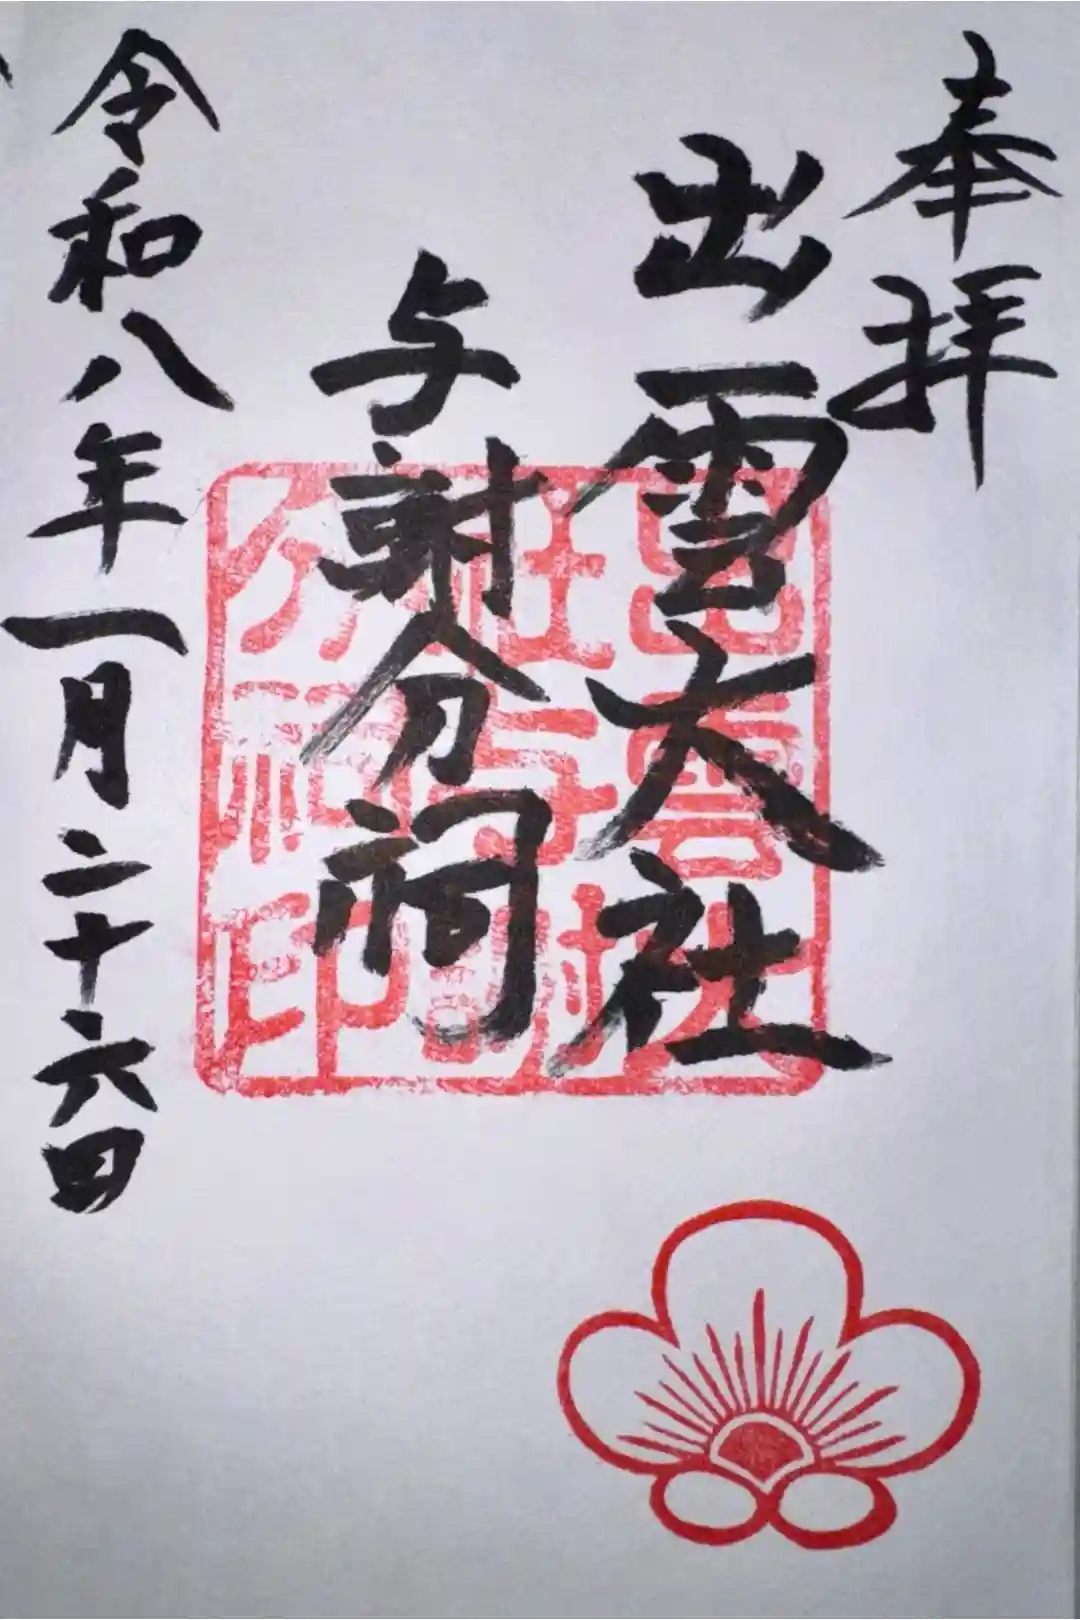 奉拝
出雲大社
与謝分祠
令和八年一月二十六日
出雲大社与謝分祠印